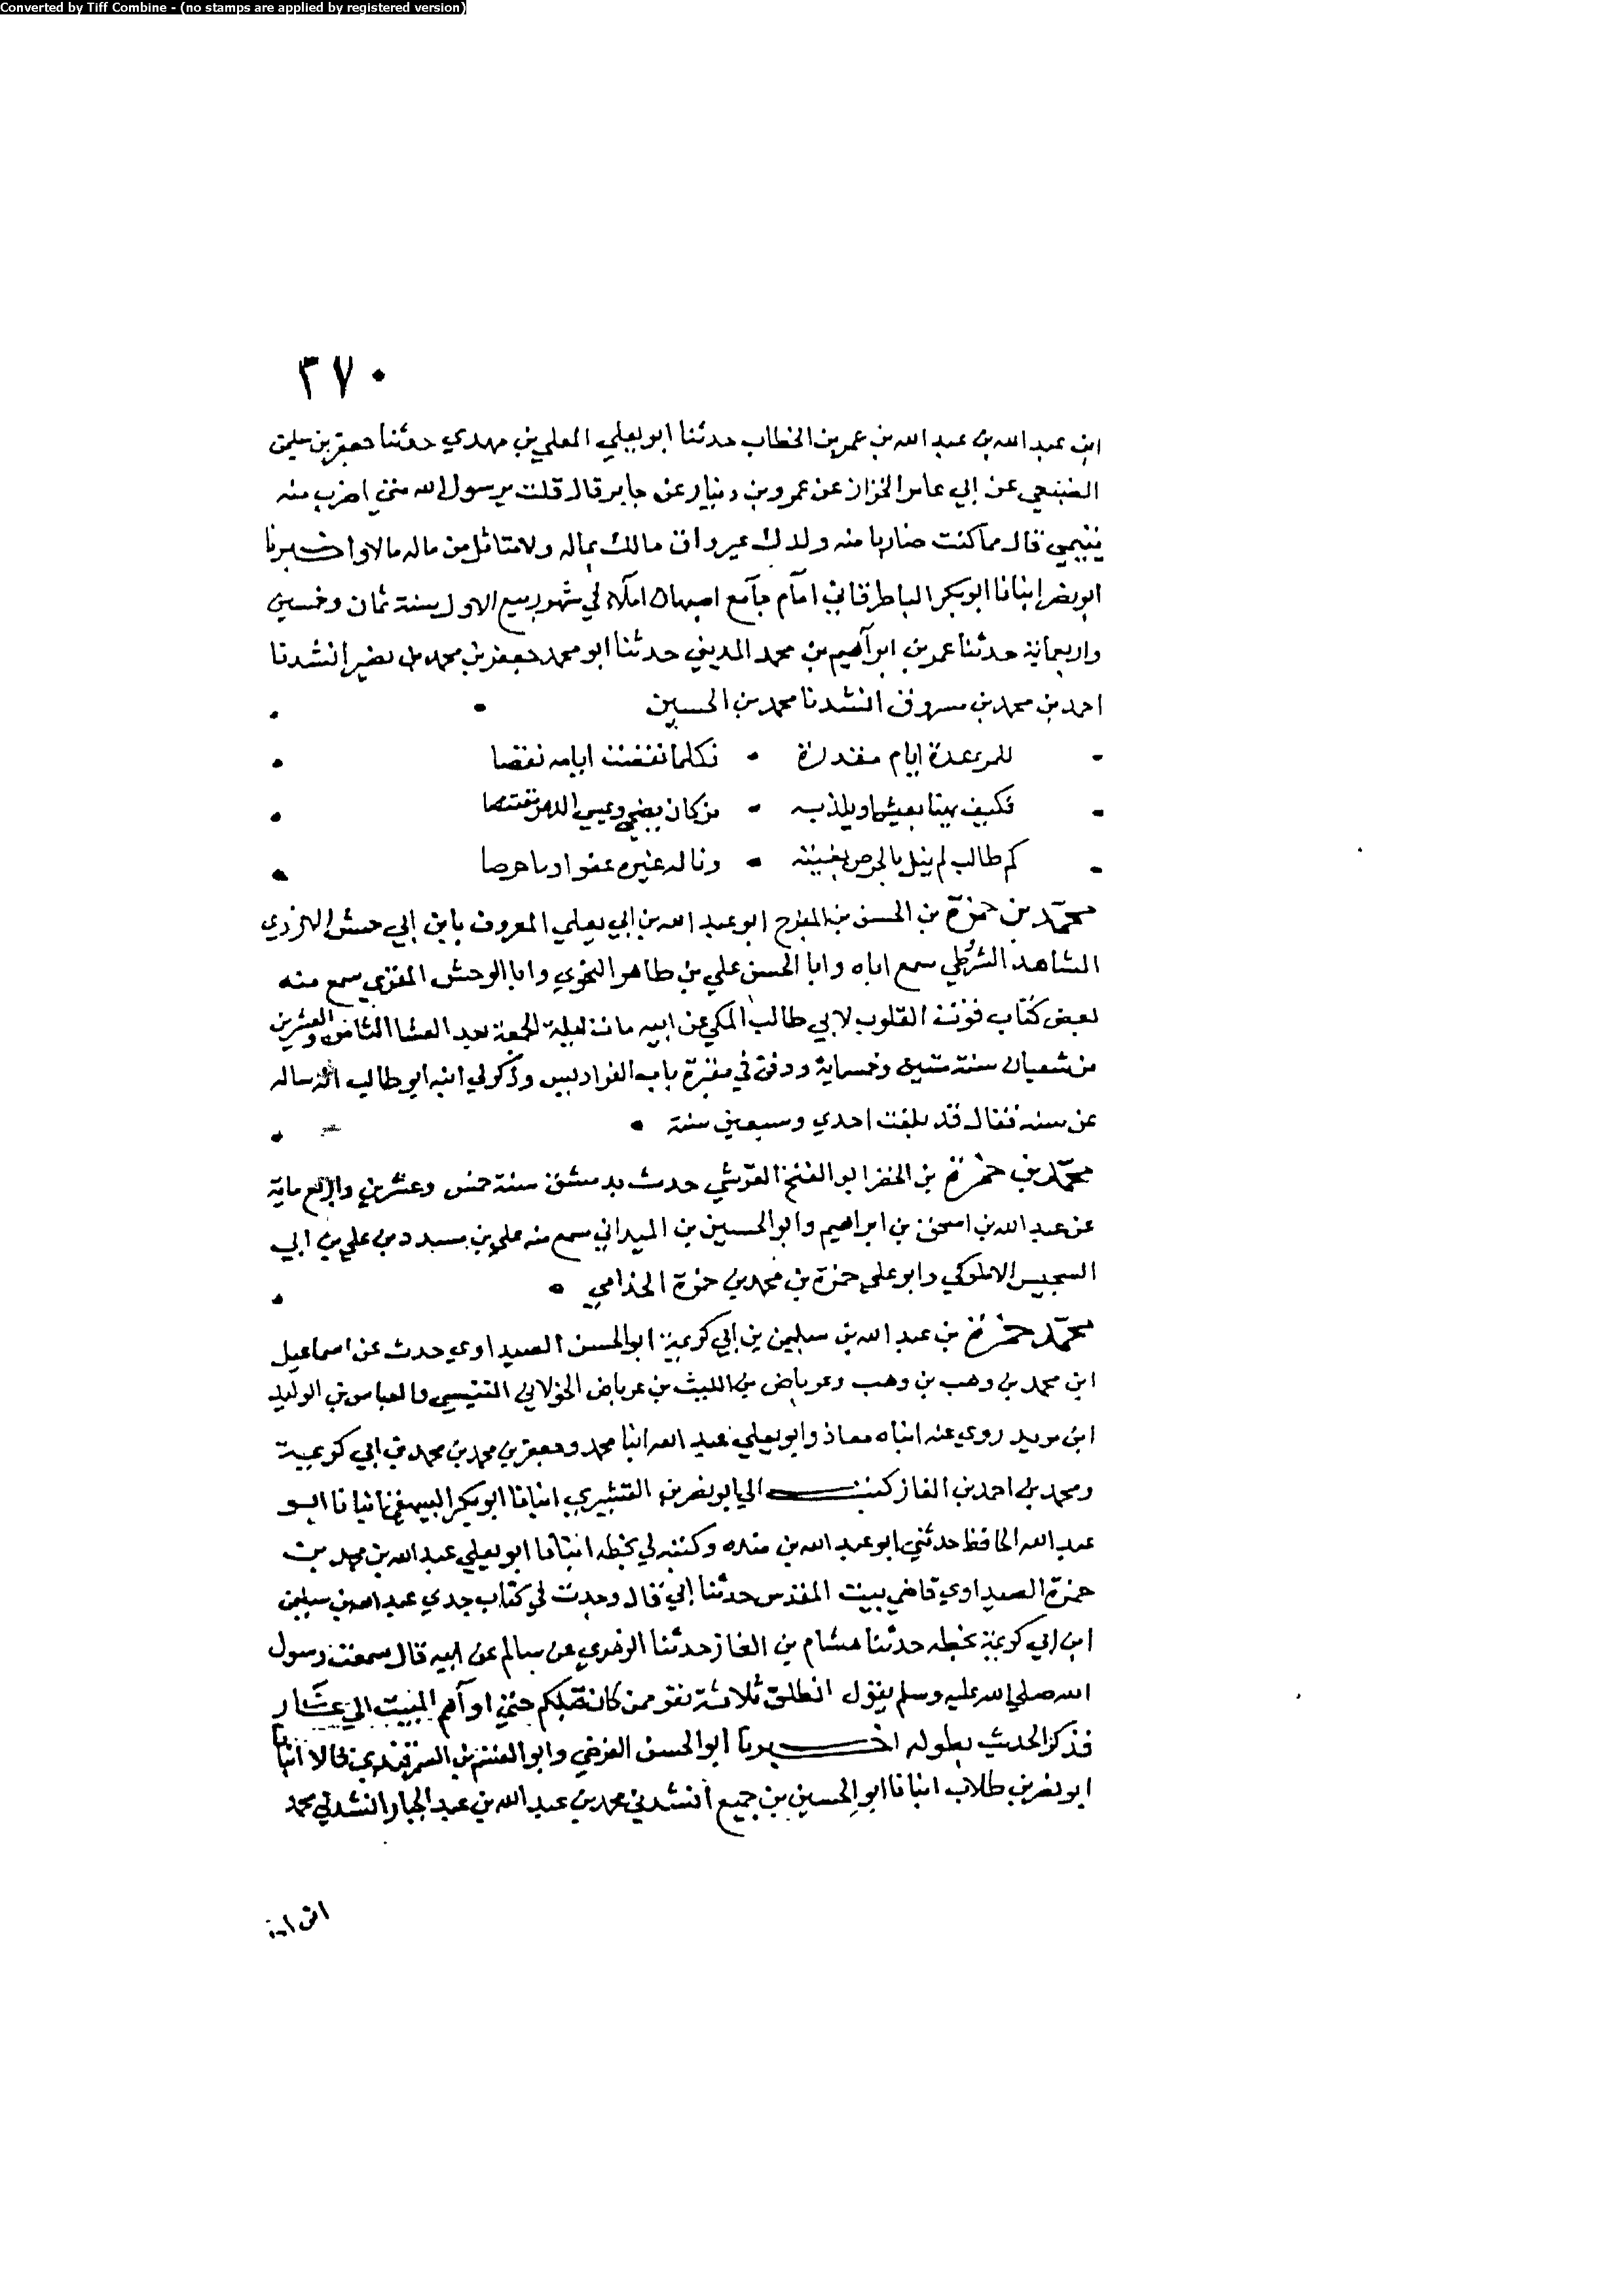 Converted by Tiff Combine - (no stamps are applied by registered version)
٣٧٠
ابن عبد الله بن عبد الله بن عمر بن الخطاب حدثنا ابو يعلي المعلي بن مهدي حدثنا جعفر بن سليمن
الضبعي عن ابي عامر الخزاز عن عمرو بن دينار عن جابر قال قلت يرسول الله مني اضرب منه
يتيمي قال مما كنت ضاربا منه ولدك غير واق مالك بماله ولا متاثل من ماله مالا واخبرنا
ابو نصر انبانا ابو بكر الباطرقاني امام جامع اصبهان املاء في شهر ربيع الاول سنة ثمان وخمسين
واربعماية حدثنا عمر بن ابراهيم بن محمد المديني حدثنا ابو محمد جعفر بن محمد بن نصير انشدنا
احمد بن محمد بن مسروق انشدنا محمد بن الحسين
للمرء عدة ايام مقدرة • فكلما نقضت ايامه نقصا
فكيف يهنا بعيش او يلذ به • من كان يضحي ويمسي الدهر مقتنصا
كم طالب لم ينل بالحرص بغيته • وناله غيره عفوا وما حرصا
محمد بن حمزة بن الحسن بن المفرج ابو عبد الله بن ابي يعلي المعروف بابن ابي حبش الازدي
الشاهد الشرطي سمع اباه وابا الحسن علي بن طاهر النحوي وابا الوحش المقري سمع منه
بعض كتاب قوت القلوب لابي طالب المكي عن ابيه مات ليلة الجمعة بعد العشا الثامن والعشرين
من شعبان سنة ستين وخمسماية ودفن في مقبرة باب الفراديس وذكر لي ابنه ابو طالب انه ساله
عن سنه فقال قد بلغت احدي وسبعين سنة •
محمد بن حمزة بن الخضر ابو الفتح القرشي حدث بدمشق سنة خمس وعشرين واربع ماية
عن عبد الله بن اسحق بن ابراهيم وابو الحسين بن الميداني سمع منه علي بن مسدد بن علي بن ابي
السجيس الاملوكي وابو علي حمزة بن محمد بن حمزة الجذامي •
محمد حمزة بن عبد الله بن سليمن بن ابي كريمة ابو الحسن الصيداوي حدث عن اسماعيل
ابن محمد بن وهب بن وهب وعرباض بن الليث بن عرباض الخولاني التنيسي والعباس بن الوليد
ابن مزيد روي عنه ابناه معاذ وابو يعلي عبد الله ابنا محمد وجعفر بن محمد بن محمد بن ابي كريمة
ومحمد بن احمد بن الغاز كتب الي ابو نصر بن القشيري انبانا ابو بكر البيهقي انبانا ابو
عبد الله الحافظ حدثني ابو عبد الله بن منده وكتبه لي بخطه انبانا ابو يعلي عبد الله بن محمد بن
حمزة الصيداوي قاضي بيت المقدس حدثنا ابي قال وجدت في كتاب جدي عبد الله بن سليمن
ابن ابي كريمة بخطه حدثنا هشام بن الغاز حدثنا الزهري عن سالم عن ابيه قال سمعت رسول
الله صلي الله عليه وسلم يقول انطلق ثلاثة نفر ممن كان قبلكم حتي اواهم المبيت الي غار
فذكر الحديث بطوله اخبرنا ابو الحسن الفرضي وابو القسم بن السمرقندي قالا انبانا
ابو نصر بن طلاب انبانا ابو الحسين بن جميع انشدني محمد بن عبد الله بن عبد الجبار انشدني محمد